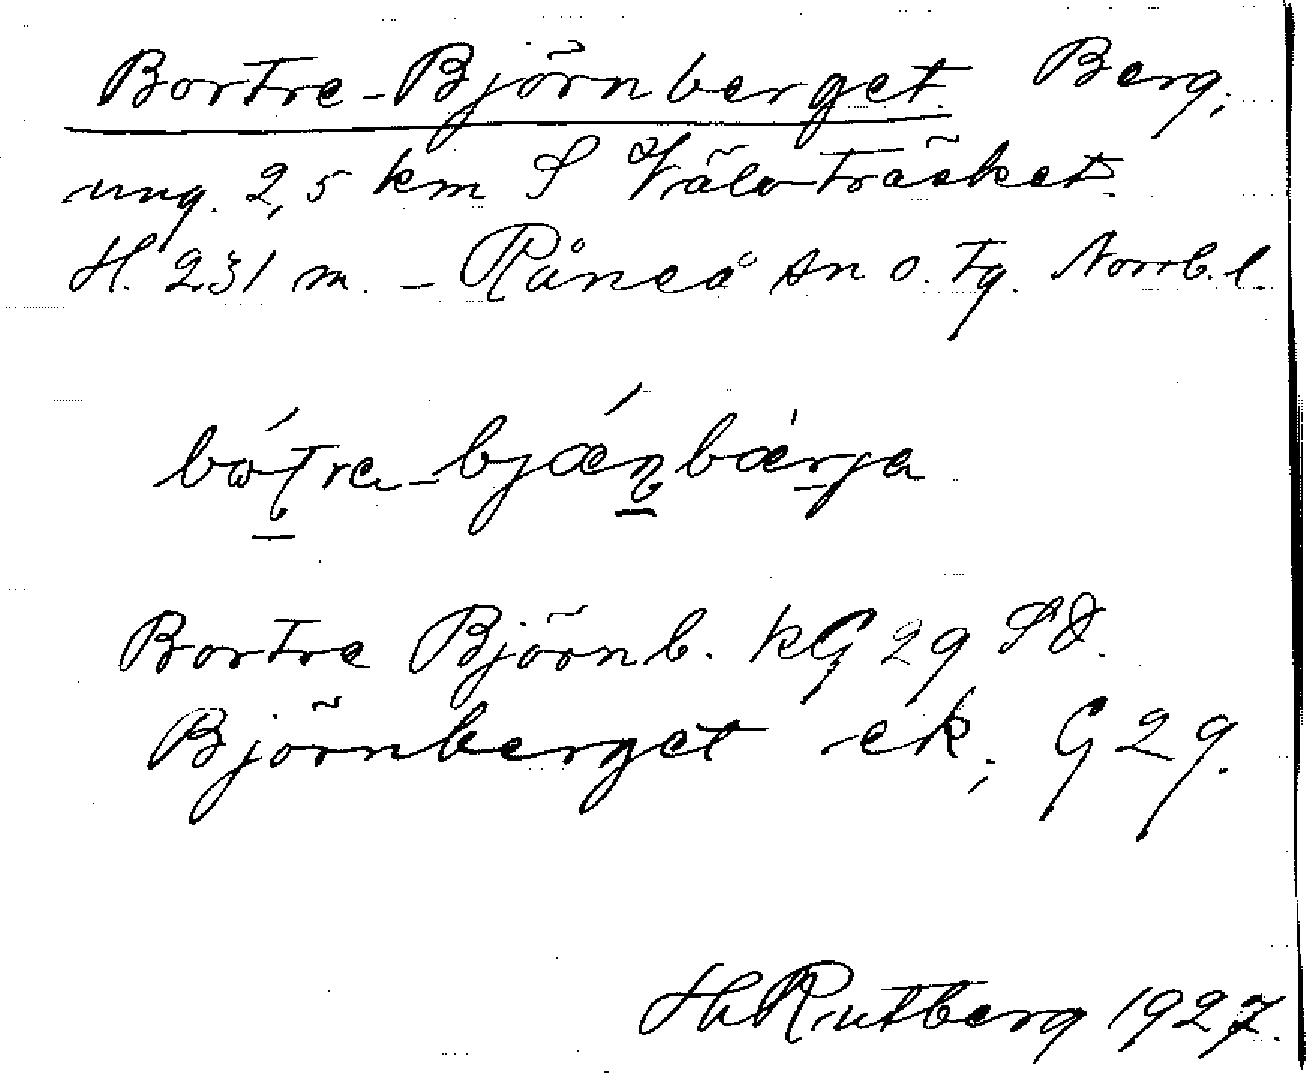 Bortre-Björnberget. Berg,
ung. 2,5 km S Välaträsket.
H. 231 m. - Råneå sn o. tg. Norrb. l.
Bortre Björnb. kG 29 SO.
Björnberget ek; G 29.
Hl Rutberg 1927.